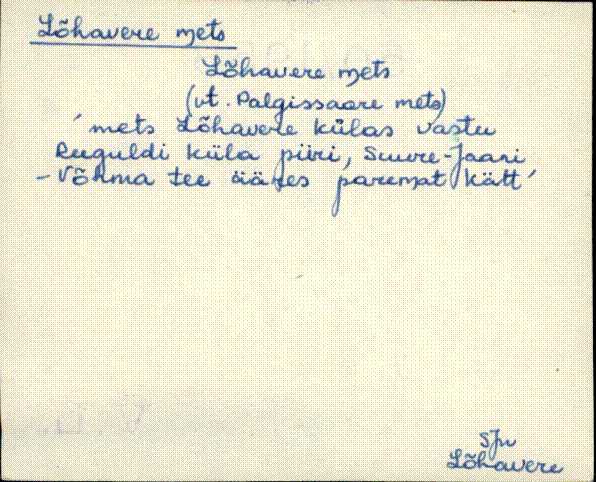 Lõhavere mets
Lõhavere mets
(vt. Palgissaare mets)
´mets Lõhavere külas vastu
Reeguldi küla piiri, Suure-Jaani
- Võhma tee ääres paremat kätt´
SJn
Lõhavere